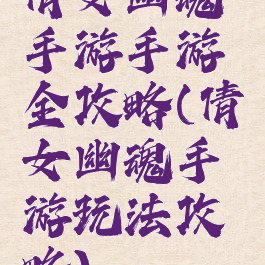 倩女幽魂
手游手游
全攻略(倩
女幽魂手
游玩法攻
略)